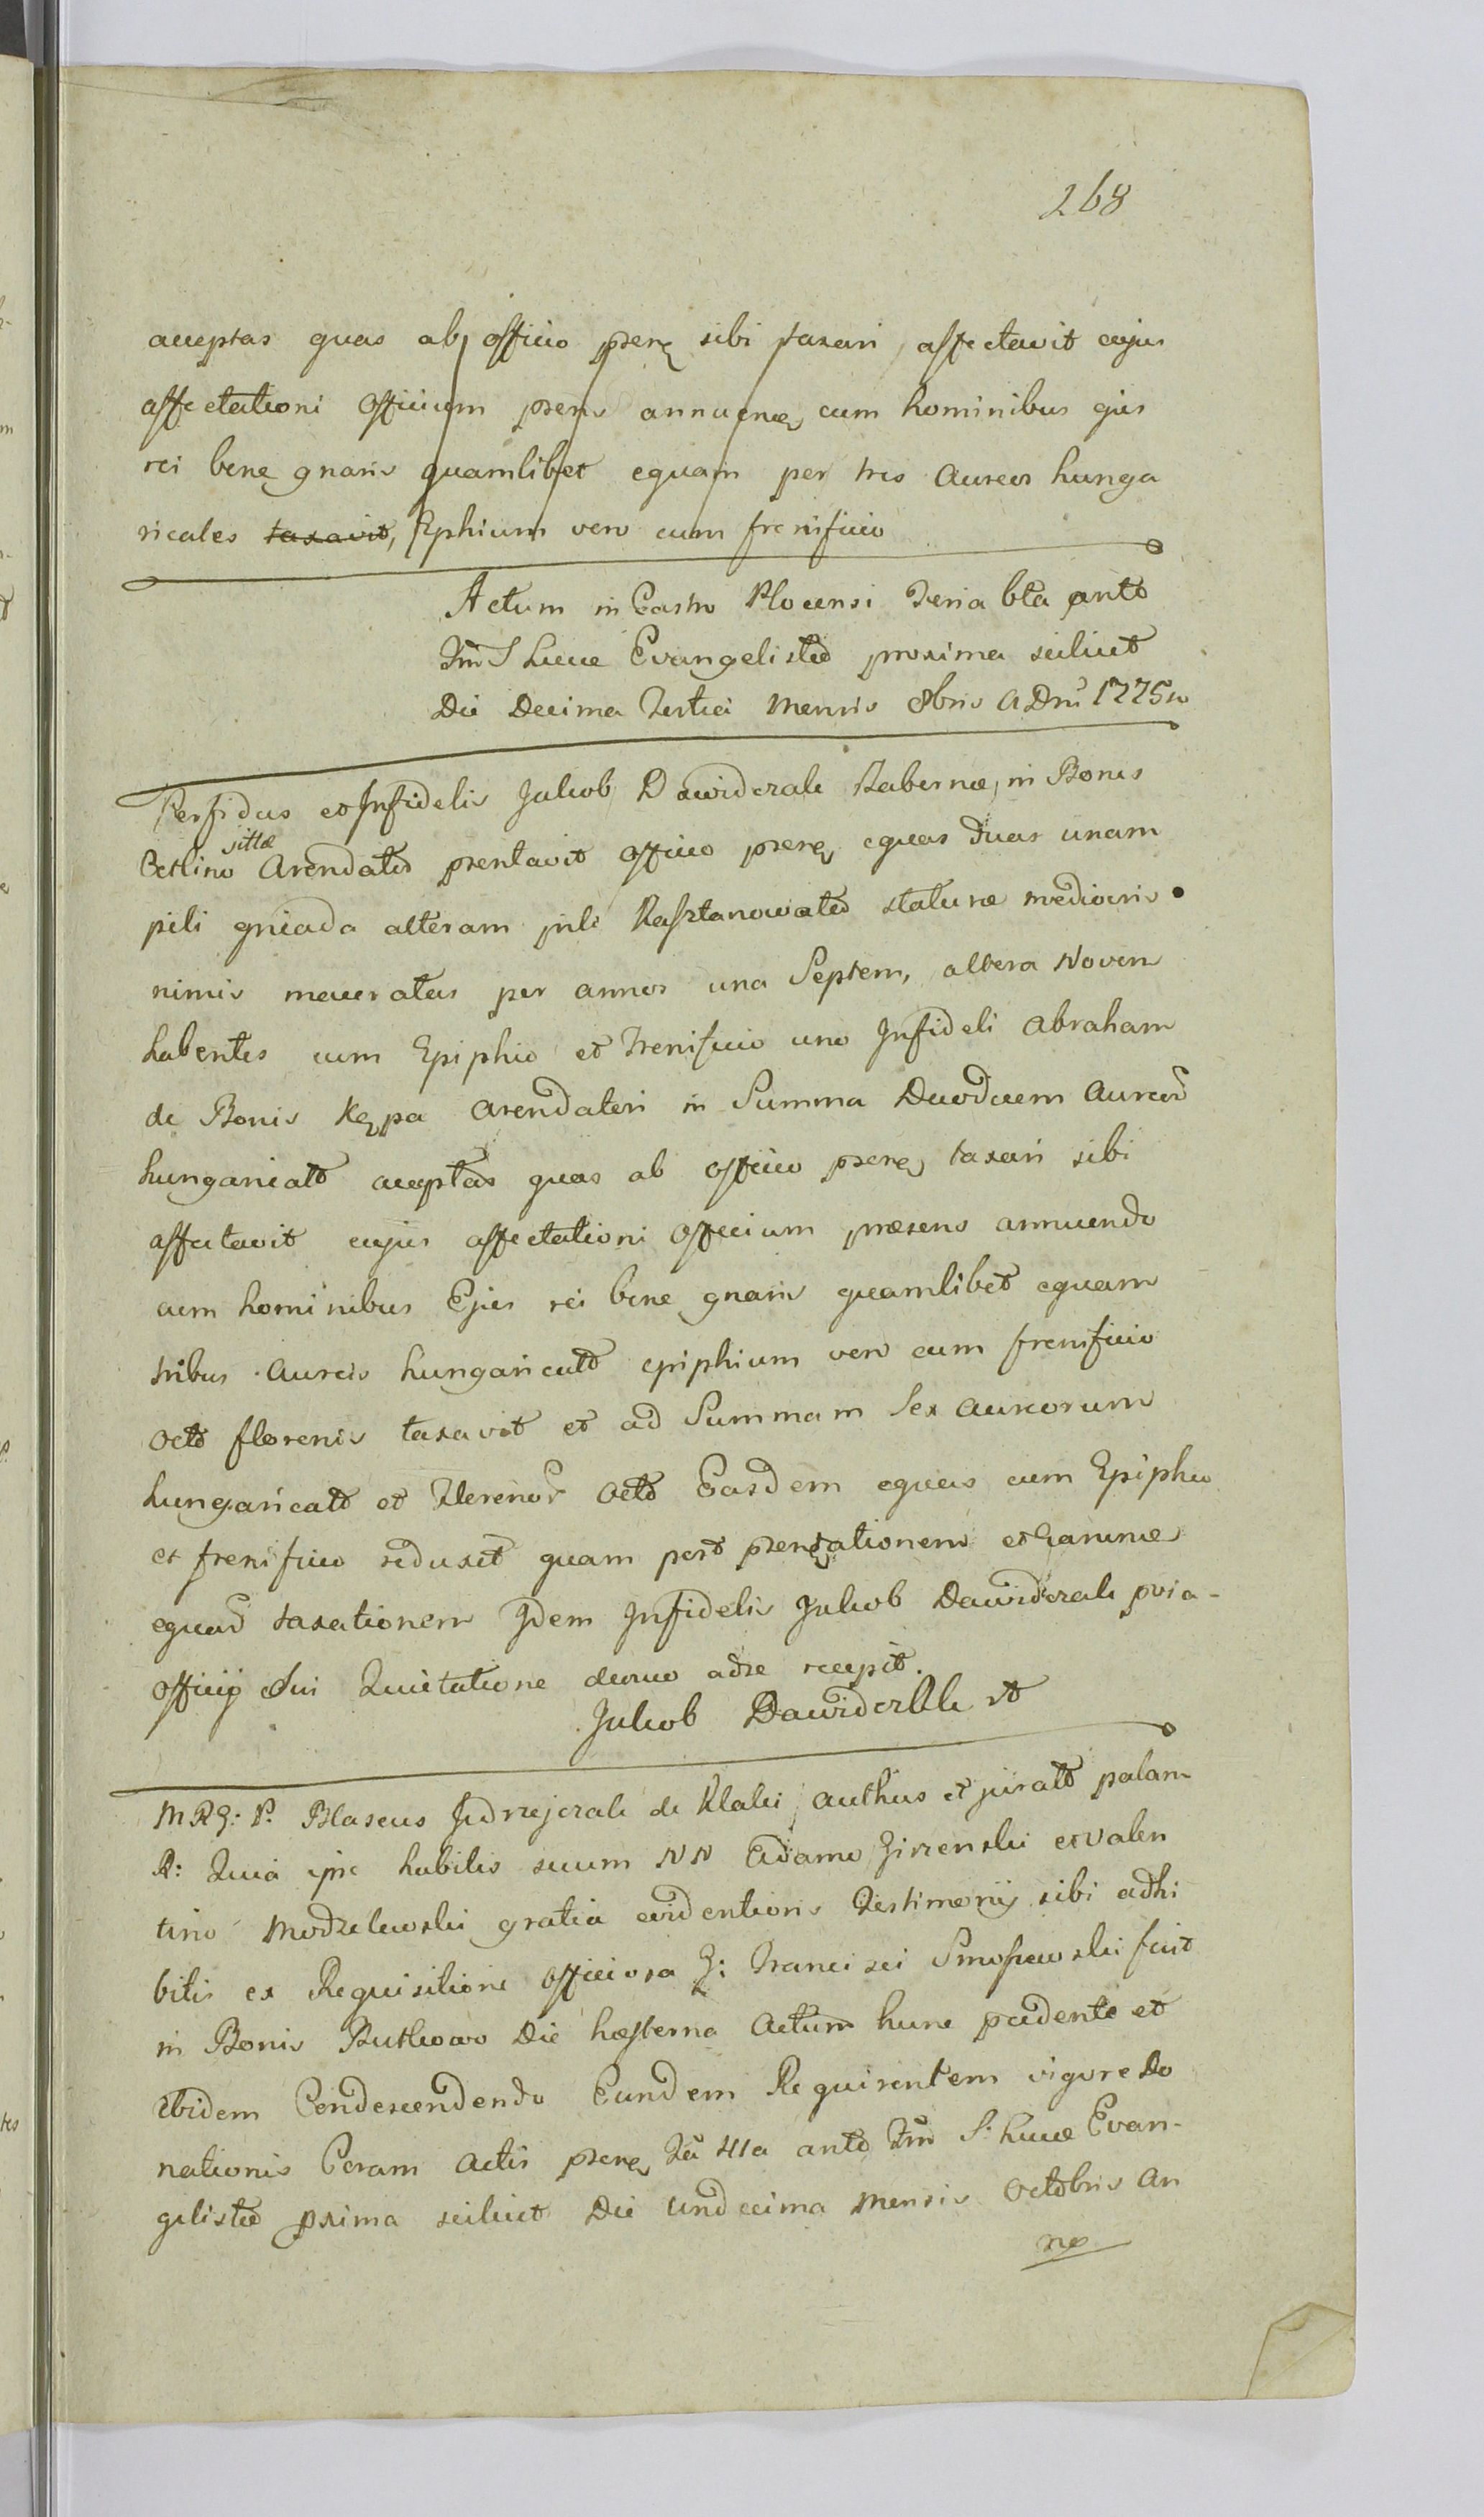 268
acceptas quas ab officio pserię sibi taxari affectavit cujus
affectationi Officium psens annuens cum hominibus ejus
rei bene gnaris quamlibet equam per tres Aureos hunga
ricales taxavit, Ephium vero cum frenificio
Actum in Castro Plocensi Feria 6ta ante
Ftm S Lucae Evangelistae proxima scilicet
Die Decima Tertia Mensis 8bris A Dni 1775to
Perfidus et Infidelis Jakob Dawidczak Tabernae, in Bonis
sittae
Cetlino Arendator psentavit officio psenę equas duas unam
pili gniada alteram pili Kasztanowatae staturae mediocris
nimis maceratas per annos una Septem, altera Novem
habentes cum Epiphio et Frenificio uno Infideli Abraham
de Bonis Kępa Arendatori in Summa Duodecem Aureor
hungaricalt acceptas quas ab officio psenę taxari sibi
affectavit cujus affectationi Officium praesens annuendo
cum hominibus Ejus rei bene gnaris quamlibet equam
tribus Aureis hungaricalt epiphium vero cum frenificio
octo florenis taxavit et ad Summam Sex Aureorum
hungaricalt et Florenor Octo Easdem equas cum Epiphio
et frenificio reduxit quam post psentationem et
equar taxationem Idem Infidelis Jakob Dawidczak pvia
officij sui Quietatione denuo adse recepit.
Jakob Dawidczak
MRG: P. Blaseus Jędrzejczak de authus et juratt palam
R: Quia ipse habitis secum NN Adamo et Valen
tino Modzelewski gratia evidentioris Testimonij sibi adhi
bitis ex Requisitione officiosa G: Francisci fuit
in Bonis Rutkowo Die hesterna Actum hunc pcedente et
ibidem Condescendendo Eundem Requirentem vigore Do
nationis Coram Actis psenę Fa 4ta ante Ftm S. Lucae Evan-
gelistae pxima scilicet Die Undecima Mensis Octobris An
no